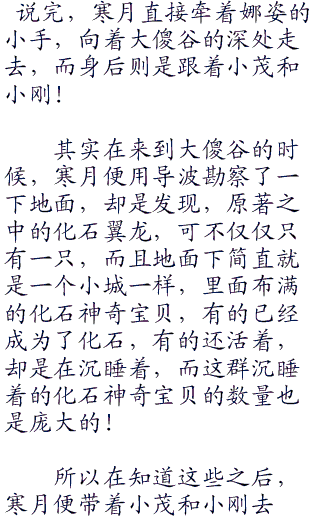 说完，寒月直接牵着娜姿的
小手，向着大傻谷的深处走
去，而身后则是跟着小茂和
小刚！
其实在来到大傻谷的时
候，寒月便用导波勘察了一
下地面，却是发现，原著之
中的化石翼龙，可不仅仅只
有一只，而且地面下简直就
是一个小城一样，里面布满
的化石神奇宝贝，有的已经
成为了化石，有的还活着，
却是在沉睡着，而这群沉睡
着的化石神奇宝贝的数量也
是庞大的！
所以在知道这些之后，
寒月便带着小茂和小刚去